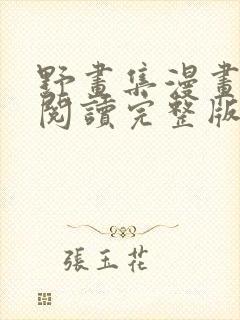 野畫集漫畫
閱讀完整版
張玉花